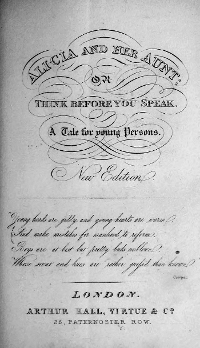 ALICIA AND HER AUNT;
OR
THINK BEFORE YOU SPEAK.
A Tale for young Persons.
New Edition
Young hearts are giddy and young hearts are warm,
And make mistakes for manhood to reform.
Boys are at best but pretty buds unblown,
Whose scent and hues are rather guess'd than known.
LONDON.
ARTHUR HALL, VIRTUE & Co
25, PATERNOSTER ROW.